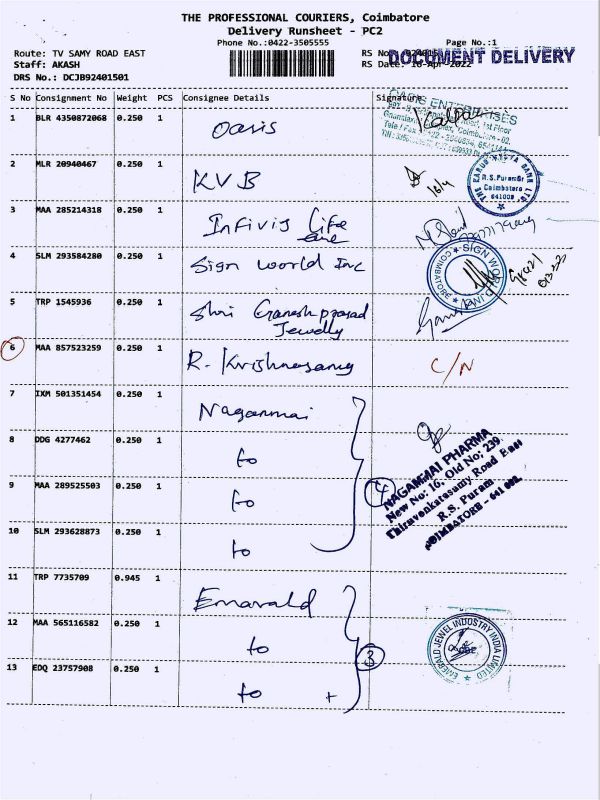 THE PROFESSIONAL COURIERS, Coimbatore
Delivery Runsheet - PC2
Phone No.:0422-3505555
Page No.:1
Route: TV SAMY ROAD EAST
RS No
DOCUMENT DELIVERY
Staff: AKASH
RS Date: 16-Apr-2022
DRS No.: DCJB92401501
S No Consignment No Weight PCS Consignee Details Signature
1 BLR 4350872068 0.250 1 Oasis
OASIS ENTERPRISES
1st Floor
Coimbatore - 02.
2 MLR 20940467 0.250 1 KVB
16/4
R.S. Puram Br
Coimbatore
641002
3 MAA 285214318 0.250 1 Infivis life
care
4 SLM 293584280 0.250 1 Sign world Inc
SIGN WORLD INC
COIMBATORE
5 TRP 1545936 0.250 1 Shri Ganesh prasad
Jewelly
6 MAA 857523259 0.250 1 R. Krishnasamy C/N
7 IXM 501351454 0.250 1 Naganmai
8 DDG 4277462 0.250 1 to
9 MAA 289525503 0.250 1 to
4
NAGAMMAI PHARMA
New No: 16, Old No: 239,
Thiruvenkatasamy Road East
R.S. Puram
COIMBATORE - 641 002.
10 SLM 293628873 0.250 1 to
11 TRP 7735709 0.945 1 Emarald
12 MAA 565116582 0.250 1 to
3
EMERALD JEWEL INDUSTRY INDIA LIMITED
CBE
13 EDQ 23757908 0.250 1 to +